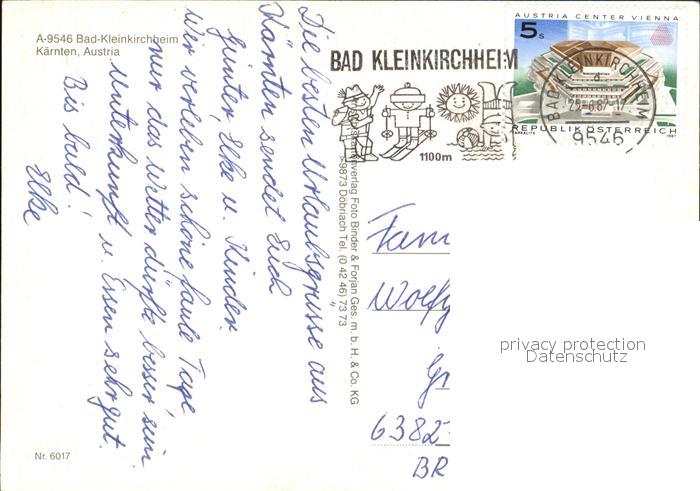 A-9546 Bad-Kleinkirchheim
Kärnten, Austria
Die besten Urlaubsgrüsse aus
Kärnten sendet Euch
Günter, Elke u. Kinder.
Wir verleben schöne faule Tage,
nur das Wetter dürfte besser sein.
Unterkunft u. Essen sehr gut.
Bis bald!
Elke
Nr. 6017
verlag Foto Binder & Forjan Ges. m. b. H. & Co. KG
9873 Döbriach Tel. (0 42 46) 73 73
BAD KLEINKIRCHHEIM
1100m
AUSTRIA CENTER VIENNA
5s
REPUBLIK ÖSTERREICH
BAD KLEINKIRCHHEIM
9546
Fam
Wolfg
Gr
6382
BR
privacy protection
Datenschutz